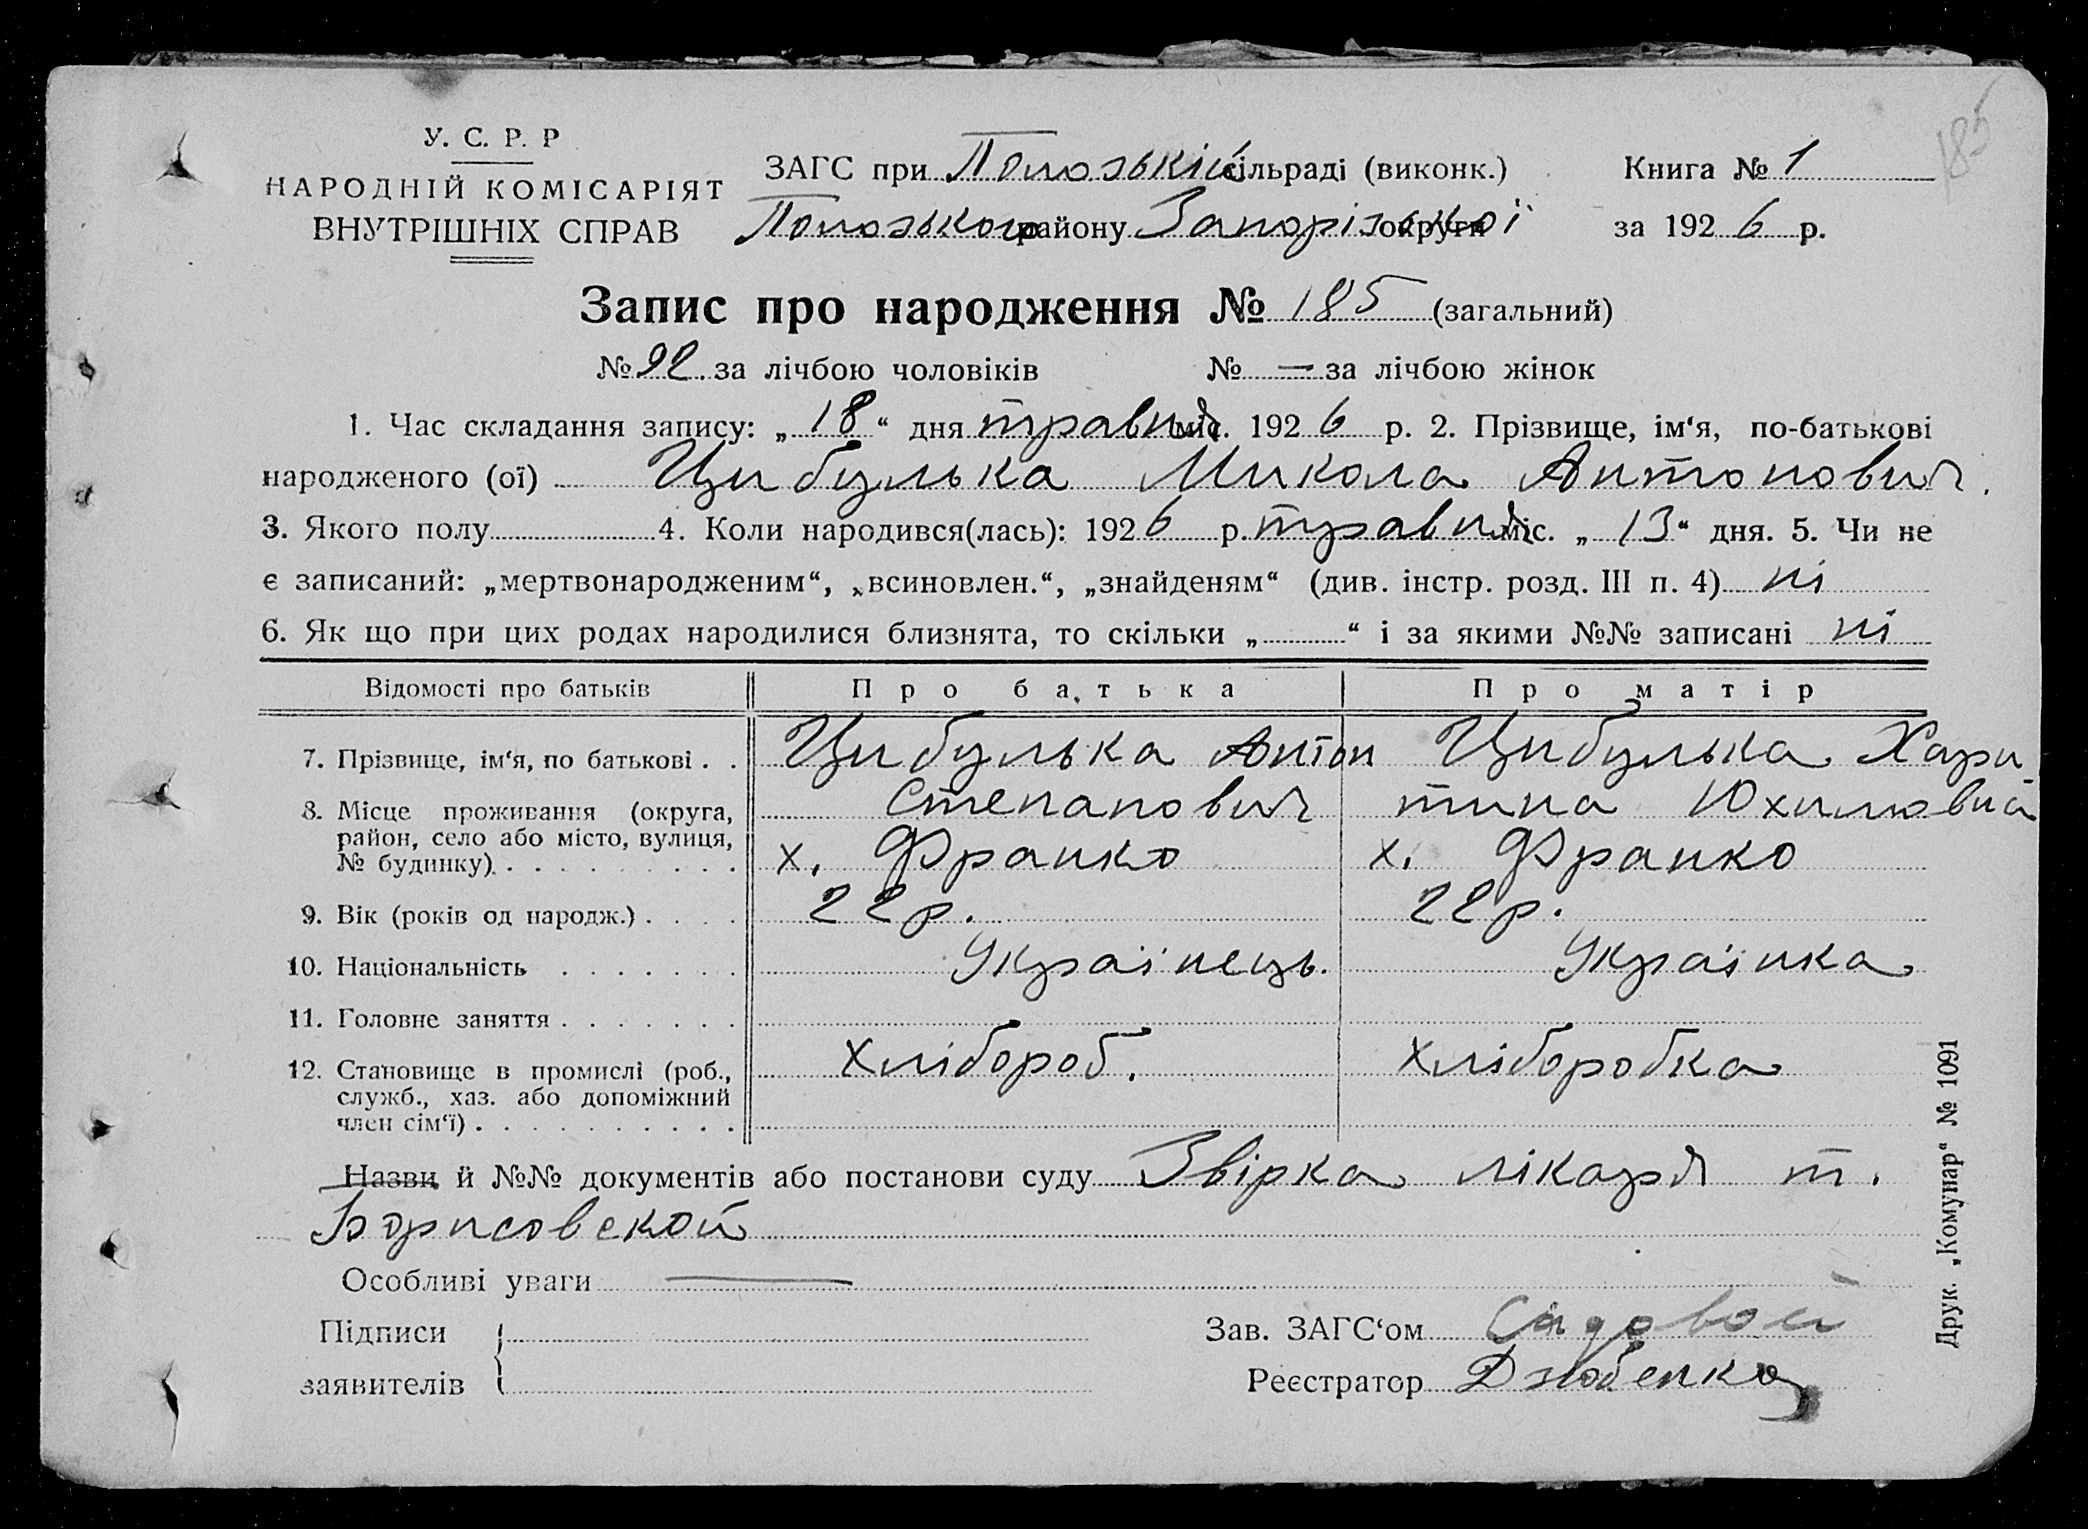 185
У. С. Р. Р
НАРОДНІЙ КОМІСАРІЯТ
ВНУТРІШНІХ СПРАВ
ЗАГС при Пологській сільраді (виконк.)
Книга № 1
Пологського району Запорізької округи
за 1926 р.
Запис про народження № 185 (загальний)
№ 92 за лічбою чоловіків № — за лічбою жінок
1. Час складання запису: „18“ дня травня міс. 1926 р. 2. Прізвище, ім‘я, по-батькові
народженого (ої) Цибулька Микола Антонович.
3. Якого полу 4. Коли народився(лась): 1926 р. травня міс. „13“ дня. 5. Чи не
є записаний: „мертвонародженим“, „всиновлен.“, „знайденям“ (див. інстр. розд. III п. 4) ні
6. Як що при цих родах народилися близнята, то скільки „ “ і за якими №№ записані ні
Відомості про батьків Про батька Про матір
7. Прізвище, ім‘я, по батькові . . Цибулька Антон Цибулька Хари
Степанович тина Юхимовна
8. Місце проживання (округа,
район, село або місто, вулиця,
№ будинку) . . . . . . . . . х. Франко х. Франко
9. Вік (років од народж.) . . . . 22 р. 22 р.
10. Національність . . . . . . . Українець. Українка
11. Головне заняття . . . . . . .
хлібороб. хліборобка
12. Становище в промислі (роб.,
служб., хаз. або допоміжний
член сім‘ї) . . . . . . . . . .
Назви й №№ документів або постанови суду Звірка лікаря т.
Борисовской
Особливі уваги —
Підписи
заявителів
Зав. ЗАГС‘ом Садовой
Реєстратор Дзюбенко
Друк. „Комунар“ № 1091